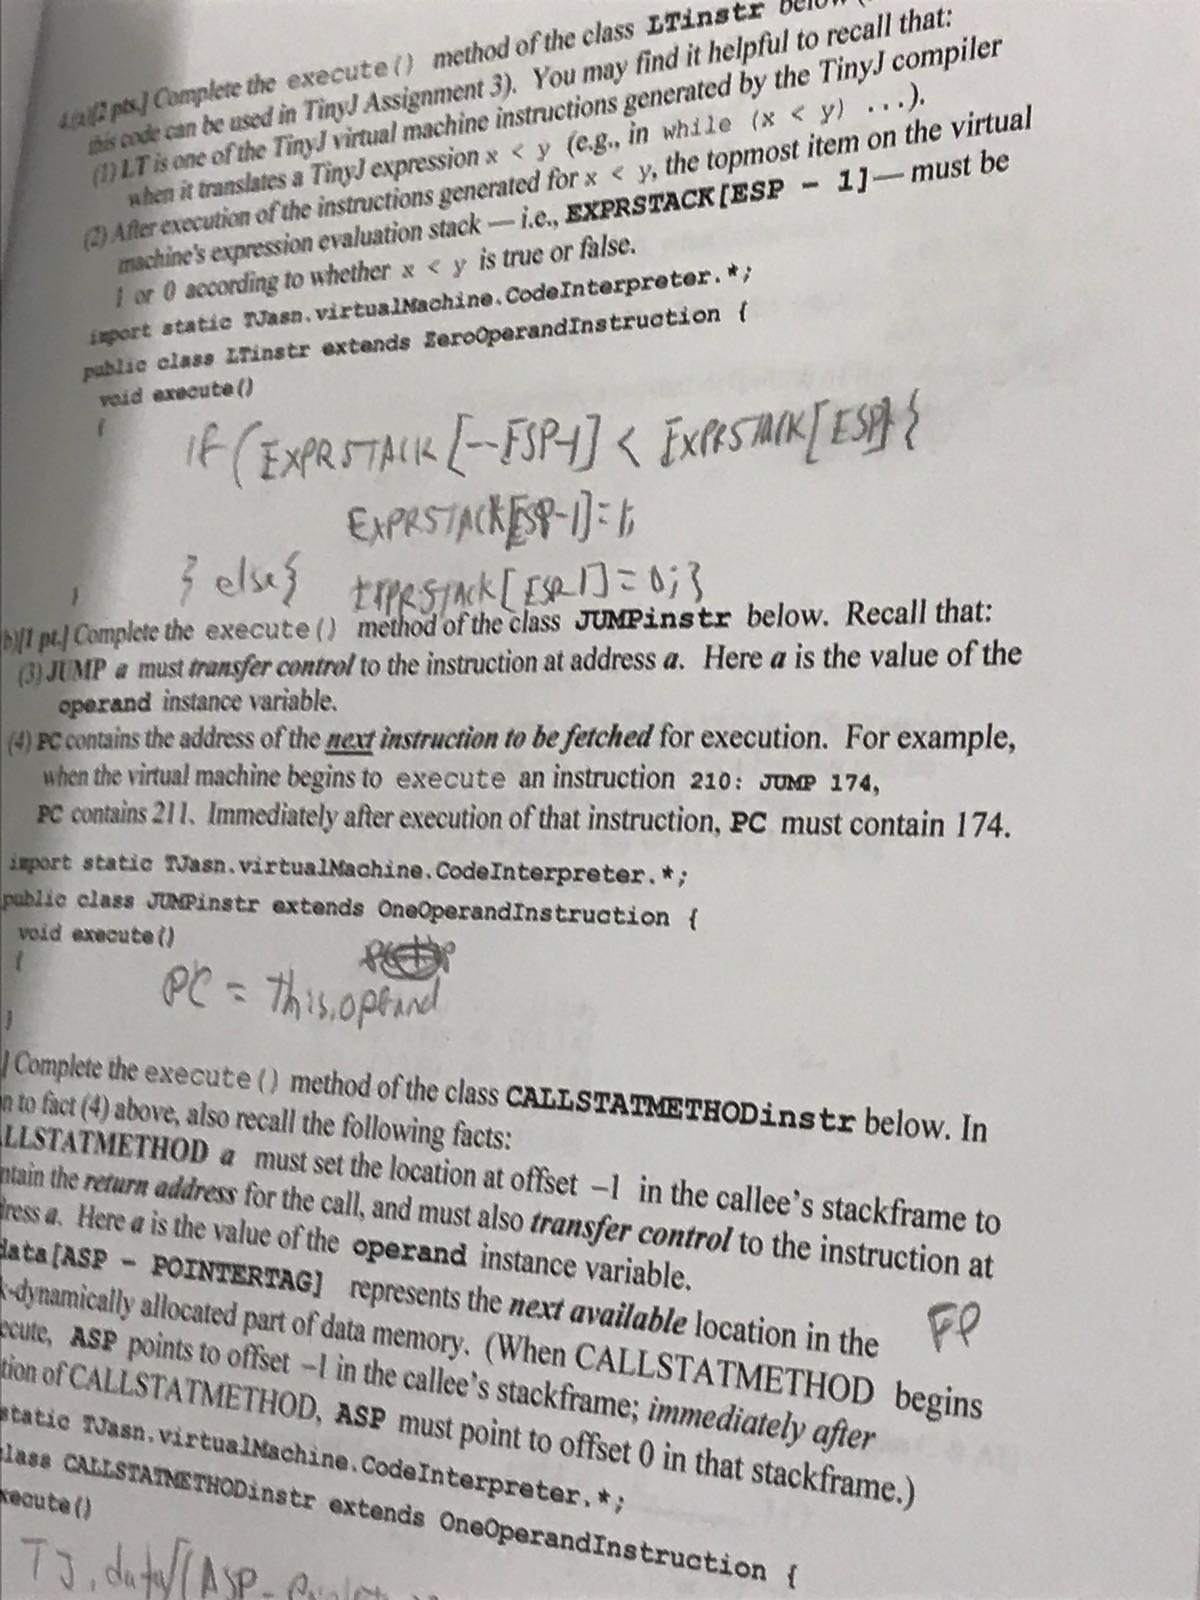 4.(a)[2 pts.] Complete the execute() method of the class LTinstr below
this code can be used in TinyJ Assignment 3). You may find it helpful to recall that:
(1) LT is one of the TinyJ virtual machine instructions generated by the TinyJ compiler
when it translates a TinyJ expression x < y (e.g., in while (x < y) ...).
(2) After execution of the instructions generated for x < y, the topmost item on the virtual
machine's expression evaluation stack — i.e., EXPRSTACK[ESP - 1] — must be
1 or 0 according to whether x < y is true or false.
import static TJasn.virtualMachine.CodeInterpreter.*;
public class LTinstr extends ZeroOperandInstruction {
void execute()
{
if (EXPRSTACK [--ESP-1] < EXPRSTACK[ESP]{
EXPRSTACK[ESP-1]=1;
} else{ EXPRSTACK[ESP-1]=0;}
}
b)[1 pt.] Complete the execute() method of the class JUMPinstr below. Recall that:
(3) JUMP a must transfer control to the instruction at address a. Here a is the value of the
operand instance variable.
(4) PC contains the address of the next instruction to be fetched for execution. For example,
when the virtual machine begins to execute an instruction 210: JUMP 174,
PC contains 211. Immediately after execution of that instruction, PC must contain 174.
import static TJasn.virtualMachine.CodeInterpreter.*;
public class JUMPinstr extends OneOperandInstruction {
void execute()
{
PC = this.operand
}
] Complete the execute() method of the class CALLSTATMETHODinstr below. In
n to fact (4) above, also recall the following facts:
LLSTATMETHOD a must set the location at offset –1 in the callee's stackframe to
ntain the return address for the call, and must also transfer control to the instruction at
dress a. Here a is the value of the operand instance variable.
data[ASP - POINTERTAG] represents the next available location in the
k-dynamically allocated part of data memory. (When CALLSTATMETHOD begins
FP
ecute, ASP points to offset –1 in the callee's stackframe; immediately after
tion of CALLSTATMETHOD, ASP must point to offset 0 in that stackframe.)
static TJasn.virtualMachine.CodeInterpreter.*;
lass CALLSTATMETHODinstr extends OneOperandInstruction {
xecute()
TJ.data[(ASP-